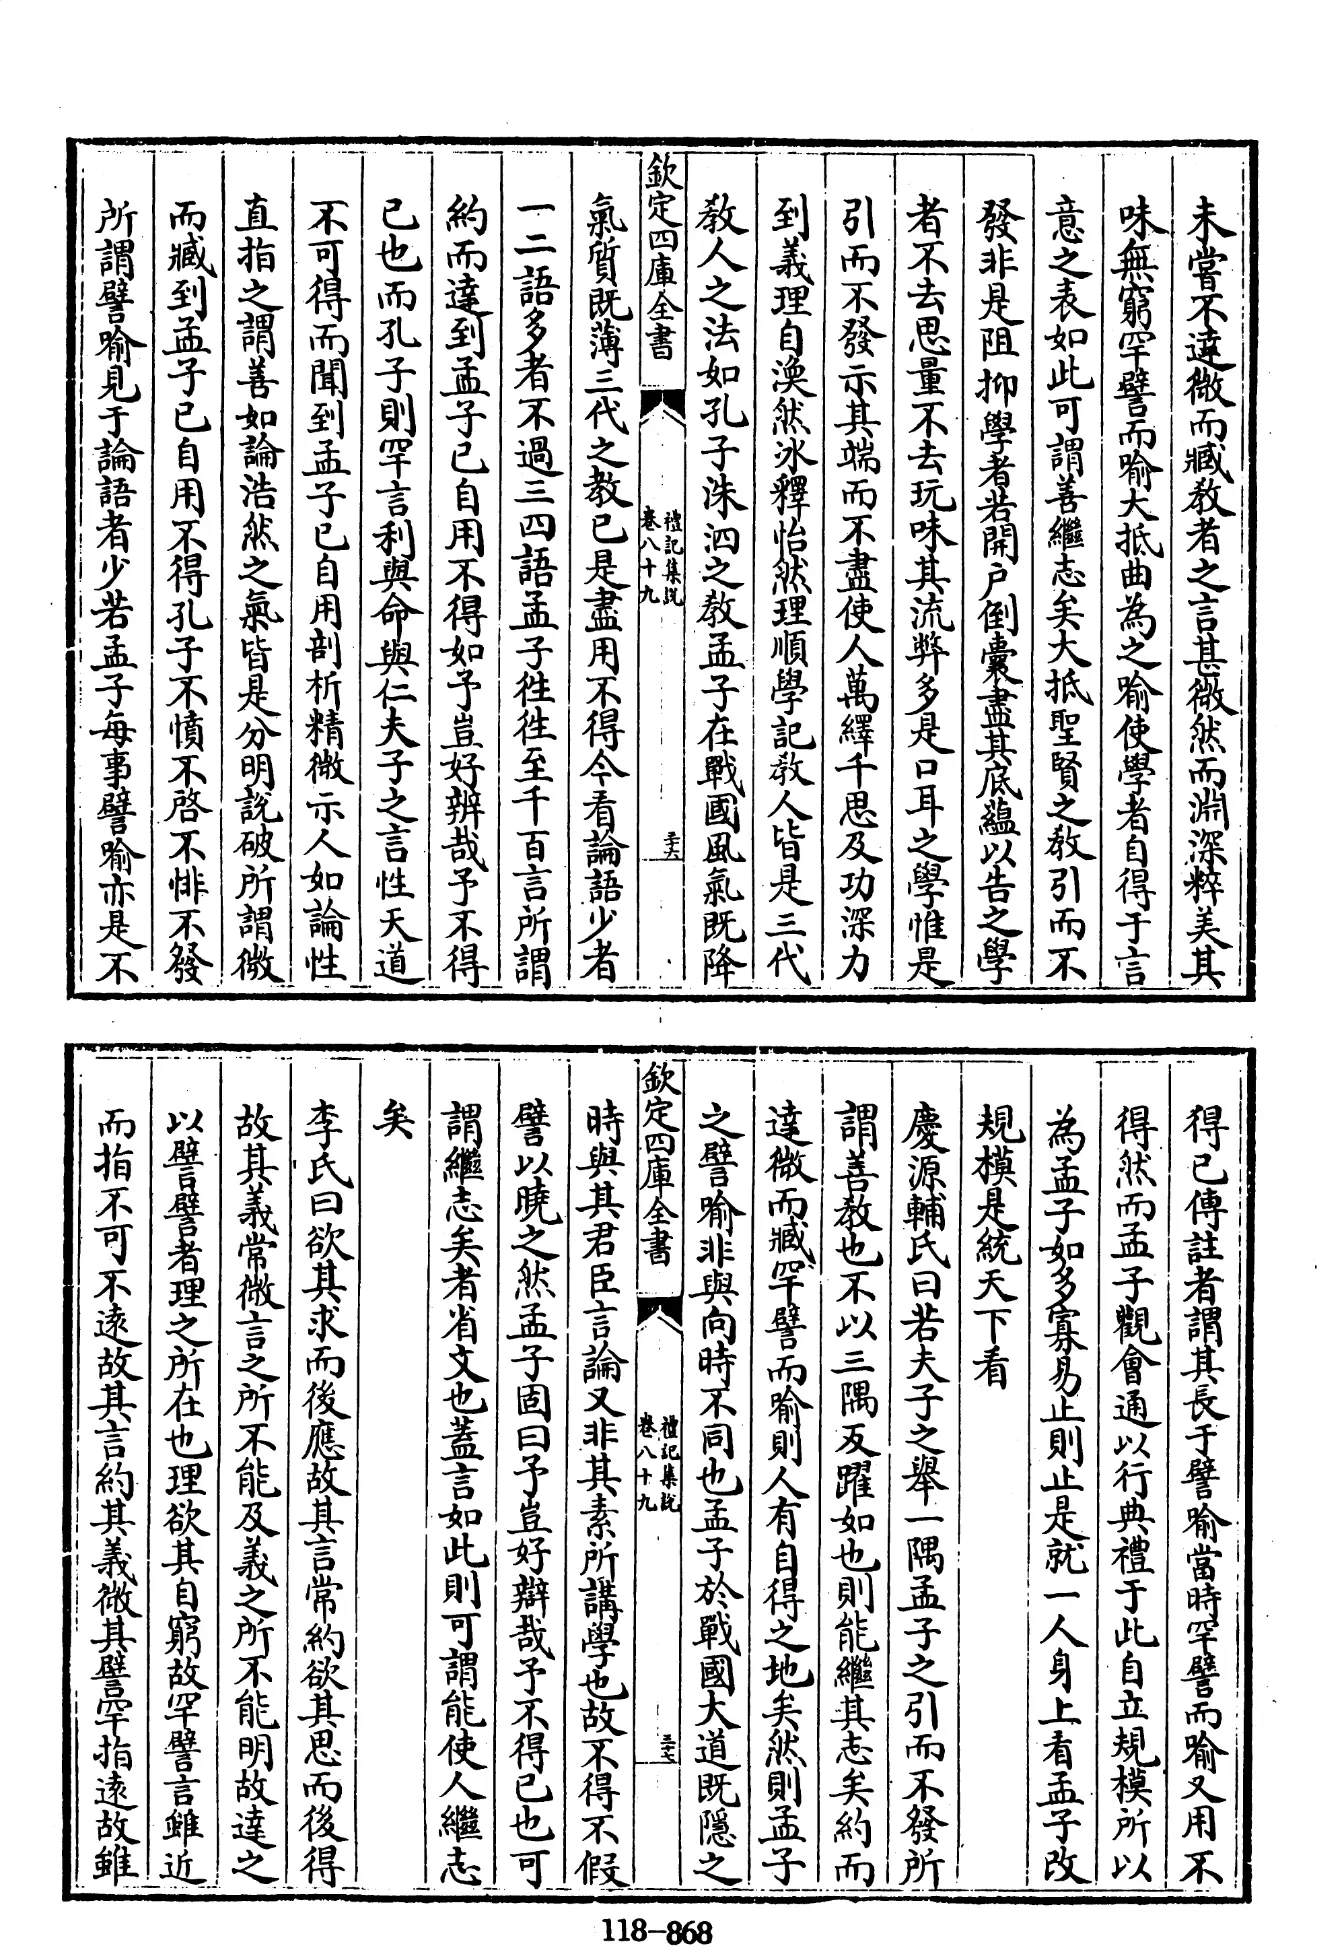 未嘗不達微而臧教者之言甚微然而淵深粹美其
味無窮罕譬而喻大抵曲為之喻使學者自得于言
意之表如此可謂善繼志矣大抵聖賢之教引而不
發非是阻抑學者若開户倒囊盡其底蘊以告之學
者不去思量不去玩味其流弊多是口耳之學惟是
引而不發示其端而不盡使人萬繹千思及功深力
到義理自渙然冰釋怡然理順學記教人皆是三代
教人之法如孔子洙泗之教孟子在戰國風氣既降
欽定四庫全書
禮記集說
卷八十九
三十六
氣質既薄三代之教已是盡用不得今看論語少者
一二語多者不過三四語孟子徃徃至千百言所謂
約而達到孟子已自用不得如予豈好辨哉予不得
已也而孔子則罕言利與命與仁夫子之言性天道
不可得而聞到孟子已自用剖析精微示人如論性
直指之謂善如論浩然之氣皆是分明說破所謂微
而臧到孟子已自用不得孔子不憤不啓不悱不發
所謂譬喻見于論語者少若孟子每事譬喻亦是不
得已傳註者謂其長于譬喻當時罕譬而喻又用不
得然而孟子觀會通以行典禮于此自立規模所以
為孟子如多寡易止則止是就一人身上看孟子改
規模是統天下看
慶源輔氏曰若夫子之舉一隅孟子之引而不發所
謂善教也不以三隅反躍如也則能繼其志矣約而
達微而臧罕譬而喻則人有自得之地矣然則孟子
之譬喻非與向時不同也孟子於戰國大道既隱之
欽定四庫全書
禮記集說
卷八十九
三十七
時與其君臣言論又非其素所講學也故不得不假
譬以曉之然孟子固曰予豈好辯哉予不得已也可
謂繼志矣者省文也蓋言如此則可謂能使人繼志
矣
李氏曰欲其求而後應故其言常約欲其思而後得
故其義常微言之所不能及義之所不能明故達之
以譬譬者理之所在也理欲其自窮故罕譬言雖近
而指不可不遠故其言約其義微其譬罕指遠故雖
118-868